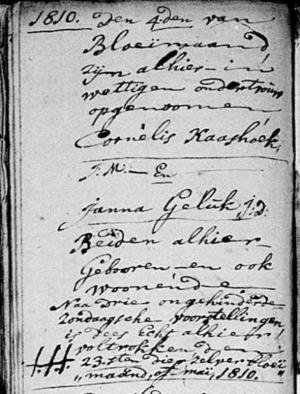 1810. Den 4den van
Bloeimaand
zijn alhier in
wettigen ondertrouw
opgenomen
Cornelis Kaashoek,
J.M. En
Janna Geluk, j:d:
Beiden alhier
Gebooren en ook
woonende
Naa drie ongehinderde
zondaagsche voorstellingen,
is dees Echt alhier
voltrokken den
23.sten dier zelver bloei
maand, of maij, 1810.